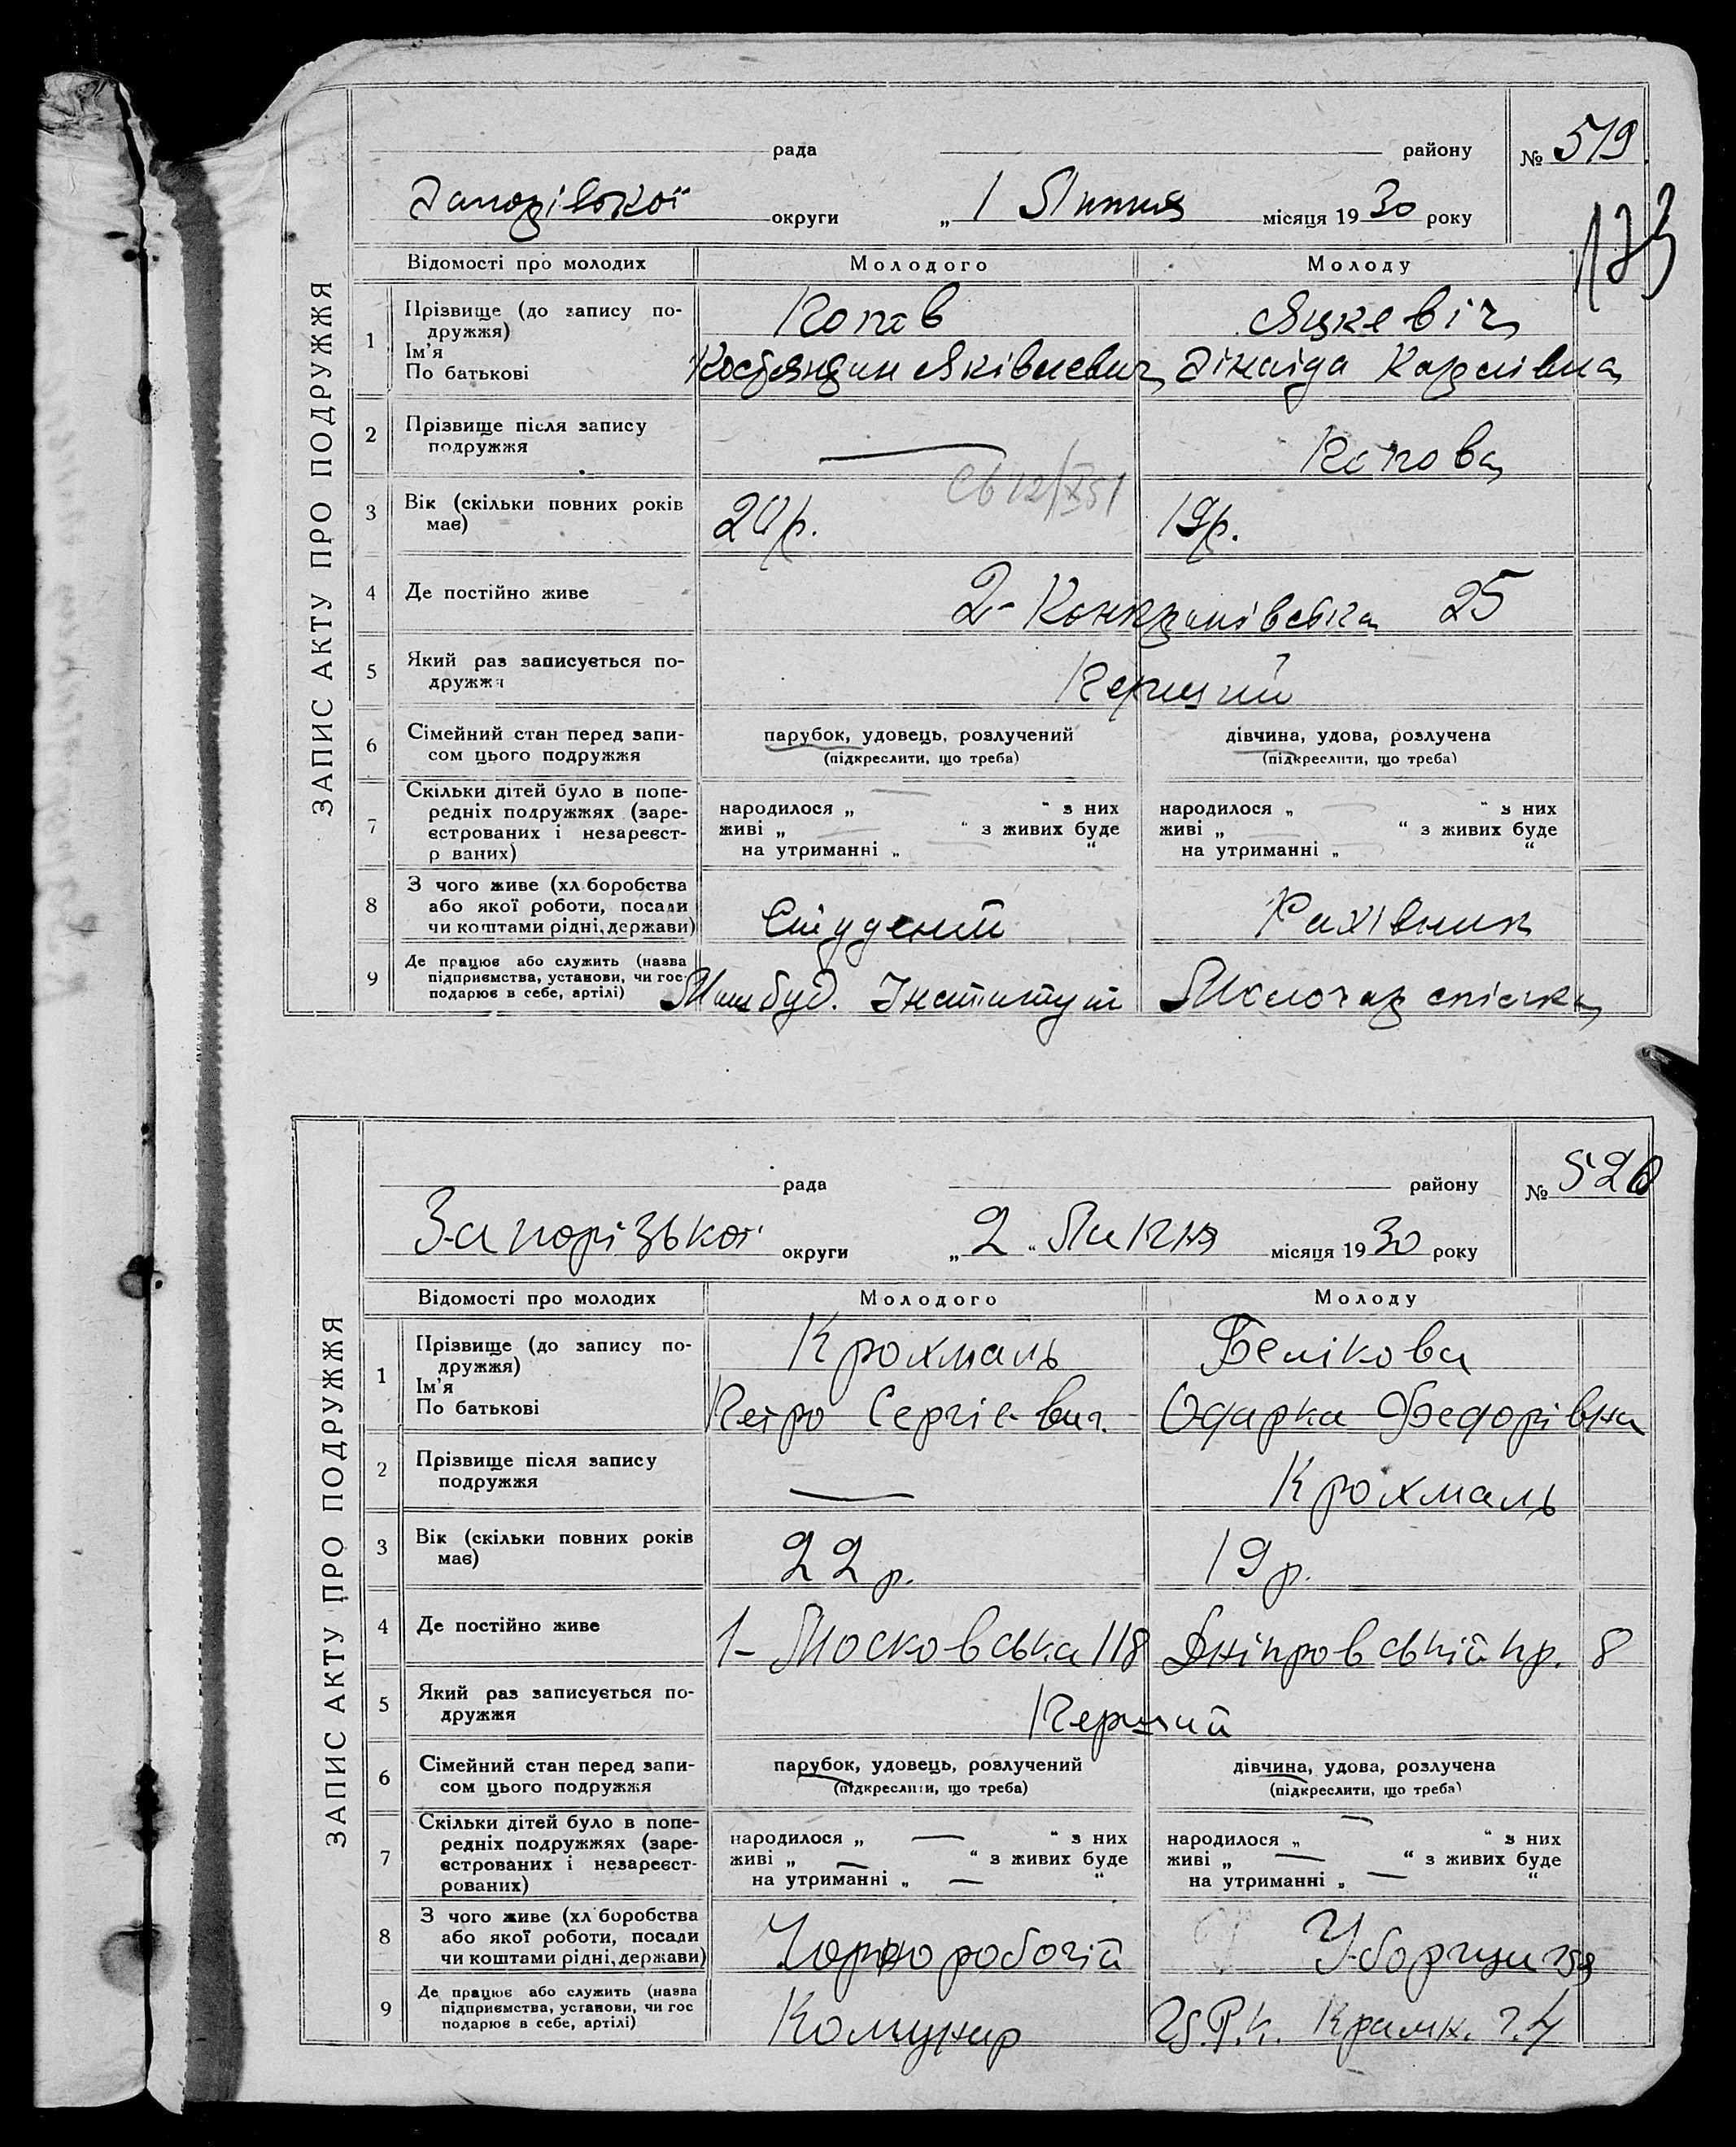 ЗАПИС АКТУ ПРО ПОДРУЖЖЯ
рада району № 519
Запорізької округи „ 1 Липня місяця 1930 року
173
Відомості про молодих Молодого Молоду
1 Прізвище (до запису подружжя) Попов Яцкевіч
Ім'я По батькові Костянтин Яківлевич Зінаїда Карлівна
2 Прізвище після запису подружжя — Попова
3 Вік (скільки повних років має) 20 р. 19 р.
4 Де постійно живе 2- 25
5 Який раз записується подружжя Перший
6 Сімейний стан перед записом цього подружжя парубок, удовець, розлучений дівчина, удова, розлучена
(підкреслити, що треба) (підкреслити, що треба)
7 Скільки дітей було в попередніх подружжях (зареєстрованих і незареєстр ваних)
народилося „ — “ з них народилося „ — “ з них
живі „ — “ з живих буде живі „ — “ з живих буде
на утриманні „ — “ на утриманні „ — “
8 З чого живе (хл боробства або якої роботи, посади чи коштами рідні, держави) Студент Рахівник
9 Де працює або служить (назва підприємства, установи, чи господарює в себе, артілі) Машбуд. Інститут Молочар спілка
ЗАПИС АКТУ ПРО ПОДРУЖЖЯ
рада району № 520
Запорізької округи „ 2 “ Липня місяця 1930 року
Відомості про молодих Молодого Молоду
1 Прізвище (до запису подружжя) Крохмаль Белікова
Ім'я По батькові Петро Сергієвич. Одарка Федорівна
2 Прізвище після запису подружжя — Крохмаль
3 Вік (скільки повних років має) 22 р. 19 р.
4 Де постійно живе 1- Московська 118 Дніпровський пр. 8
5 Який раз записується подружжя Перший
6 Сімейний стан перед записом цього подружжя парубок, удовець, розлучений дівчина, удова, розлучена
(підкреслити, що треба) (підкреслити, що треба)
7 Скільки дітей було в попередніх подружжях (зареєстрованих і незареєстрованих)
народилося „ — “ з них народилося „ — “ з них
живі „ — “ з живих буде живі „ — “ з живих буде
на утриманні „ — “ на утриманні „ — “
8 З чого живе (хл боробства або якої роботи, посади чи коштами рідні, держави) Чорноробочій Уборщиця
9 Де працює або служить (назва підприємства, установи, чи гос подарює в себе, артілі) Комунар Ц.Р.К. Крамн. ч. 4